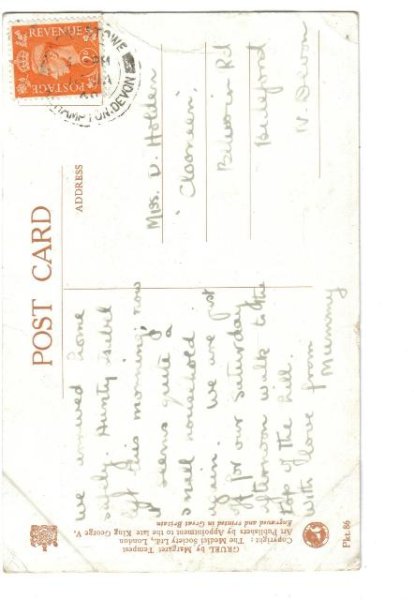 POST CARD
ADDRESS
we arrived home
safely. Aunty Isobel
left this morning, now
it seems quite a
small household
again. We are just
off for our Saturday
afternoon walk to the
top of the hill.
with love from
Mummy
Miss. D. Holden
'Clooneen',
Rd
Bideford
N. Devon
REVENUE
POSTAGE
HAMPTON.DEVON
GRUEL by Margaret Tempest
Copyright: The Medici Society Ltd., London
Art Publishers by Appointment to the late King George V.
Engraved and Printed in Great Britain
Pkt. 86